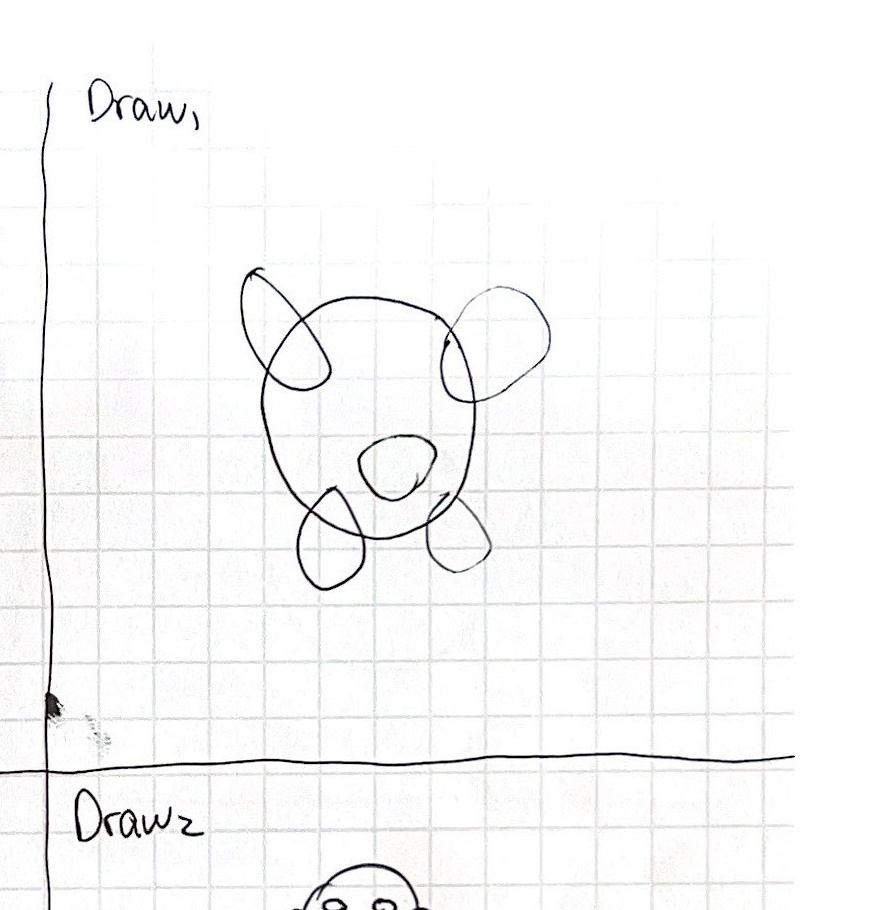 Draw1
Draw2